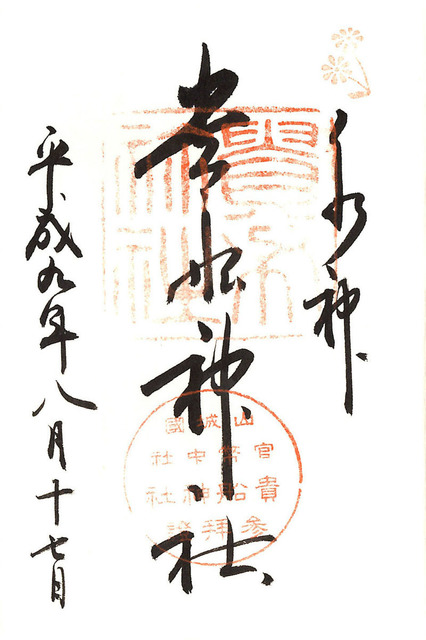 水神
貴船神社
平成九年八月十七日
貴船神社
山城國
官幣中社
貴船神社
参拜證